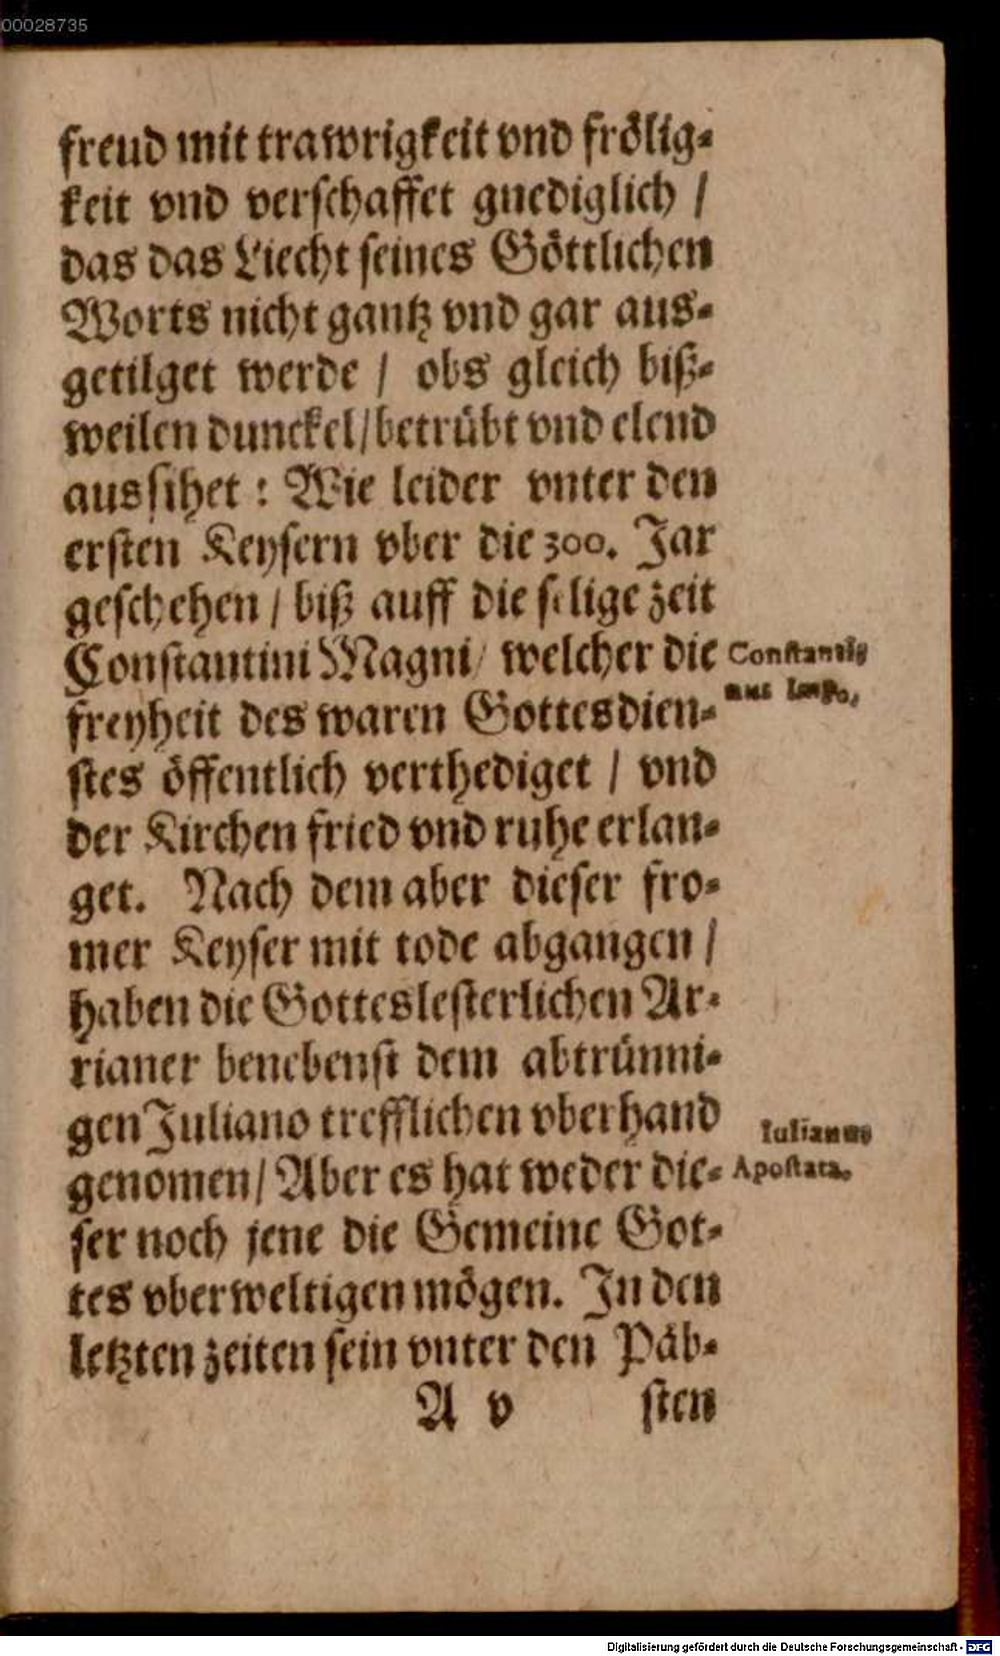 00028735
freud mit trawrigkeit vnd frölig-
keit vnd verschaffet gnediglich /
das das Liecht seines Göttlichen
Worts nicht gantz vnd gar aus-
getilget werde / obs gleich biß-
weilen dunckel / betrübt vnd elend
aussihet : Wie leider vnter den
ersten Keysern vber die 300. Jar
geschehen / biß auff die selige zeit
Constantini Magni / welcher die
Constanti-
nus Imp.
freyheit des waren Gottesdien-
stes öffentlich verthediget / vnd
der Kirchen fried vnd ruhe erlan-
get. Nach dem aber dieser fro-
mer Keyser mit tode abgangen /
haben die Gotteslesterlichen Ar-
rianer benebenst dem abtrünni-
gen Juliano trefflichen vberhand
Iulianus
Apostata.
genomen / Aber es hat weder die-
ser noch jene die Gemeine Got-
tes vberweltigen mögen. In den
letzten zeiten sein vnter den Päb-
A v sten
Digitalisierung gefördert durch die Deutsche Forschungsgemeinschaft - DFG